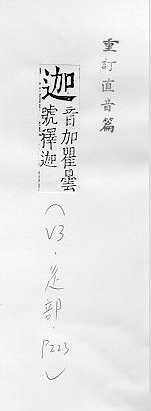 重訂直音篇
迦
音加瞿曇
號釋迦
(V3.辵部.P223)